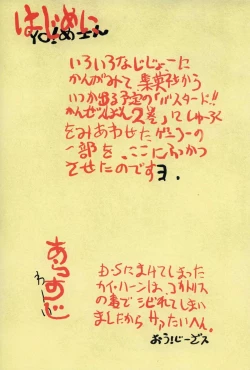 はじめに
YO!めェん
いろいろなじじょーに
かんがみて 集英社から
いつか出る予定の「バスタード!!
かんぜんばん2巻」にしゅーろく
をみあわせた
一部を、ここにふっかつ
させたのですヨ.
あらすじ
わーい
D・Sにまけてしまった
カイ・ハーンは、
の毒でシビれてしまい
ましたから サァたいへん。
おぅ!じーざス